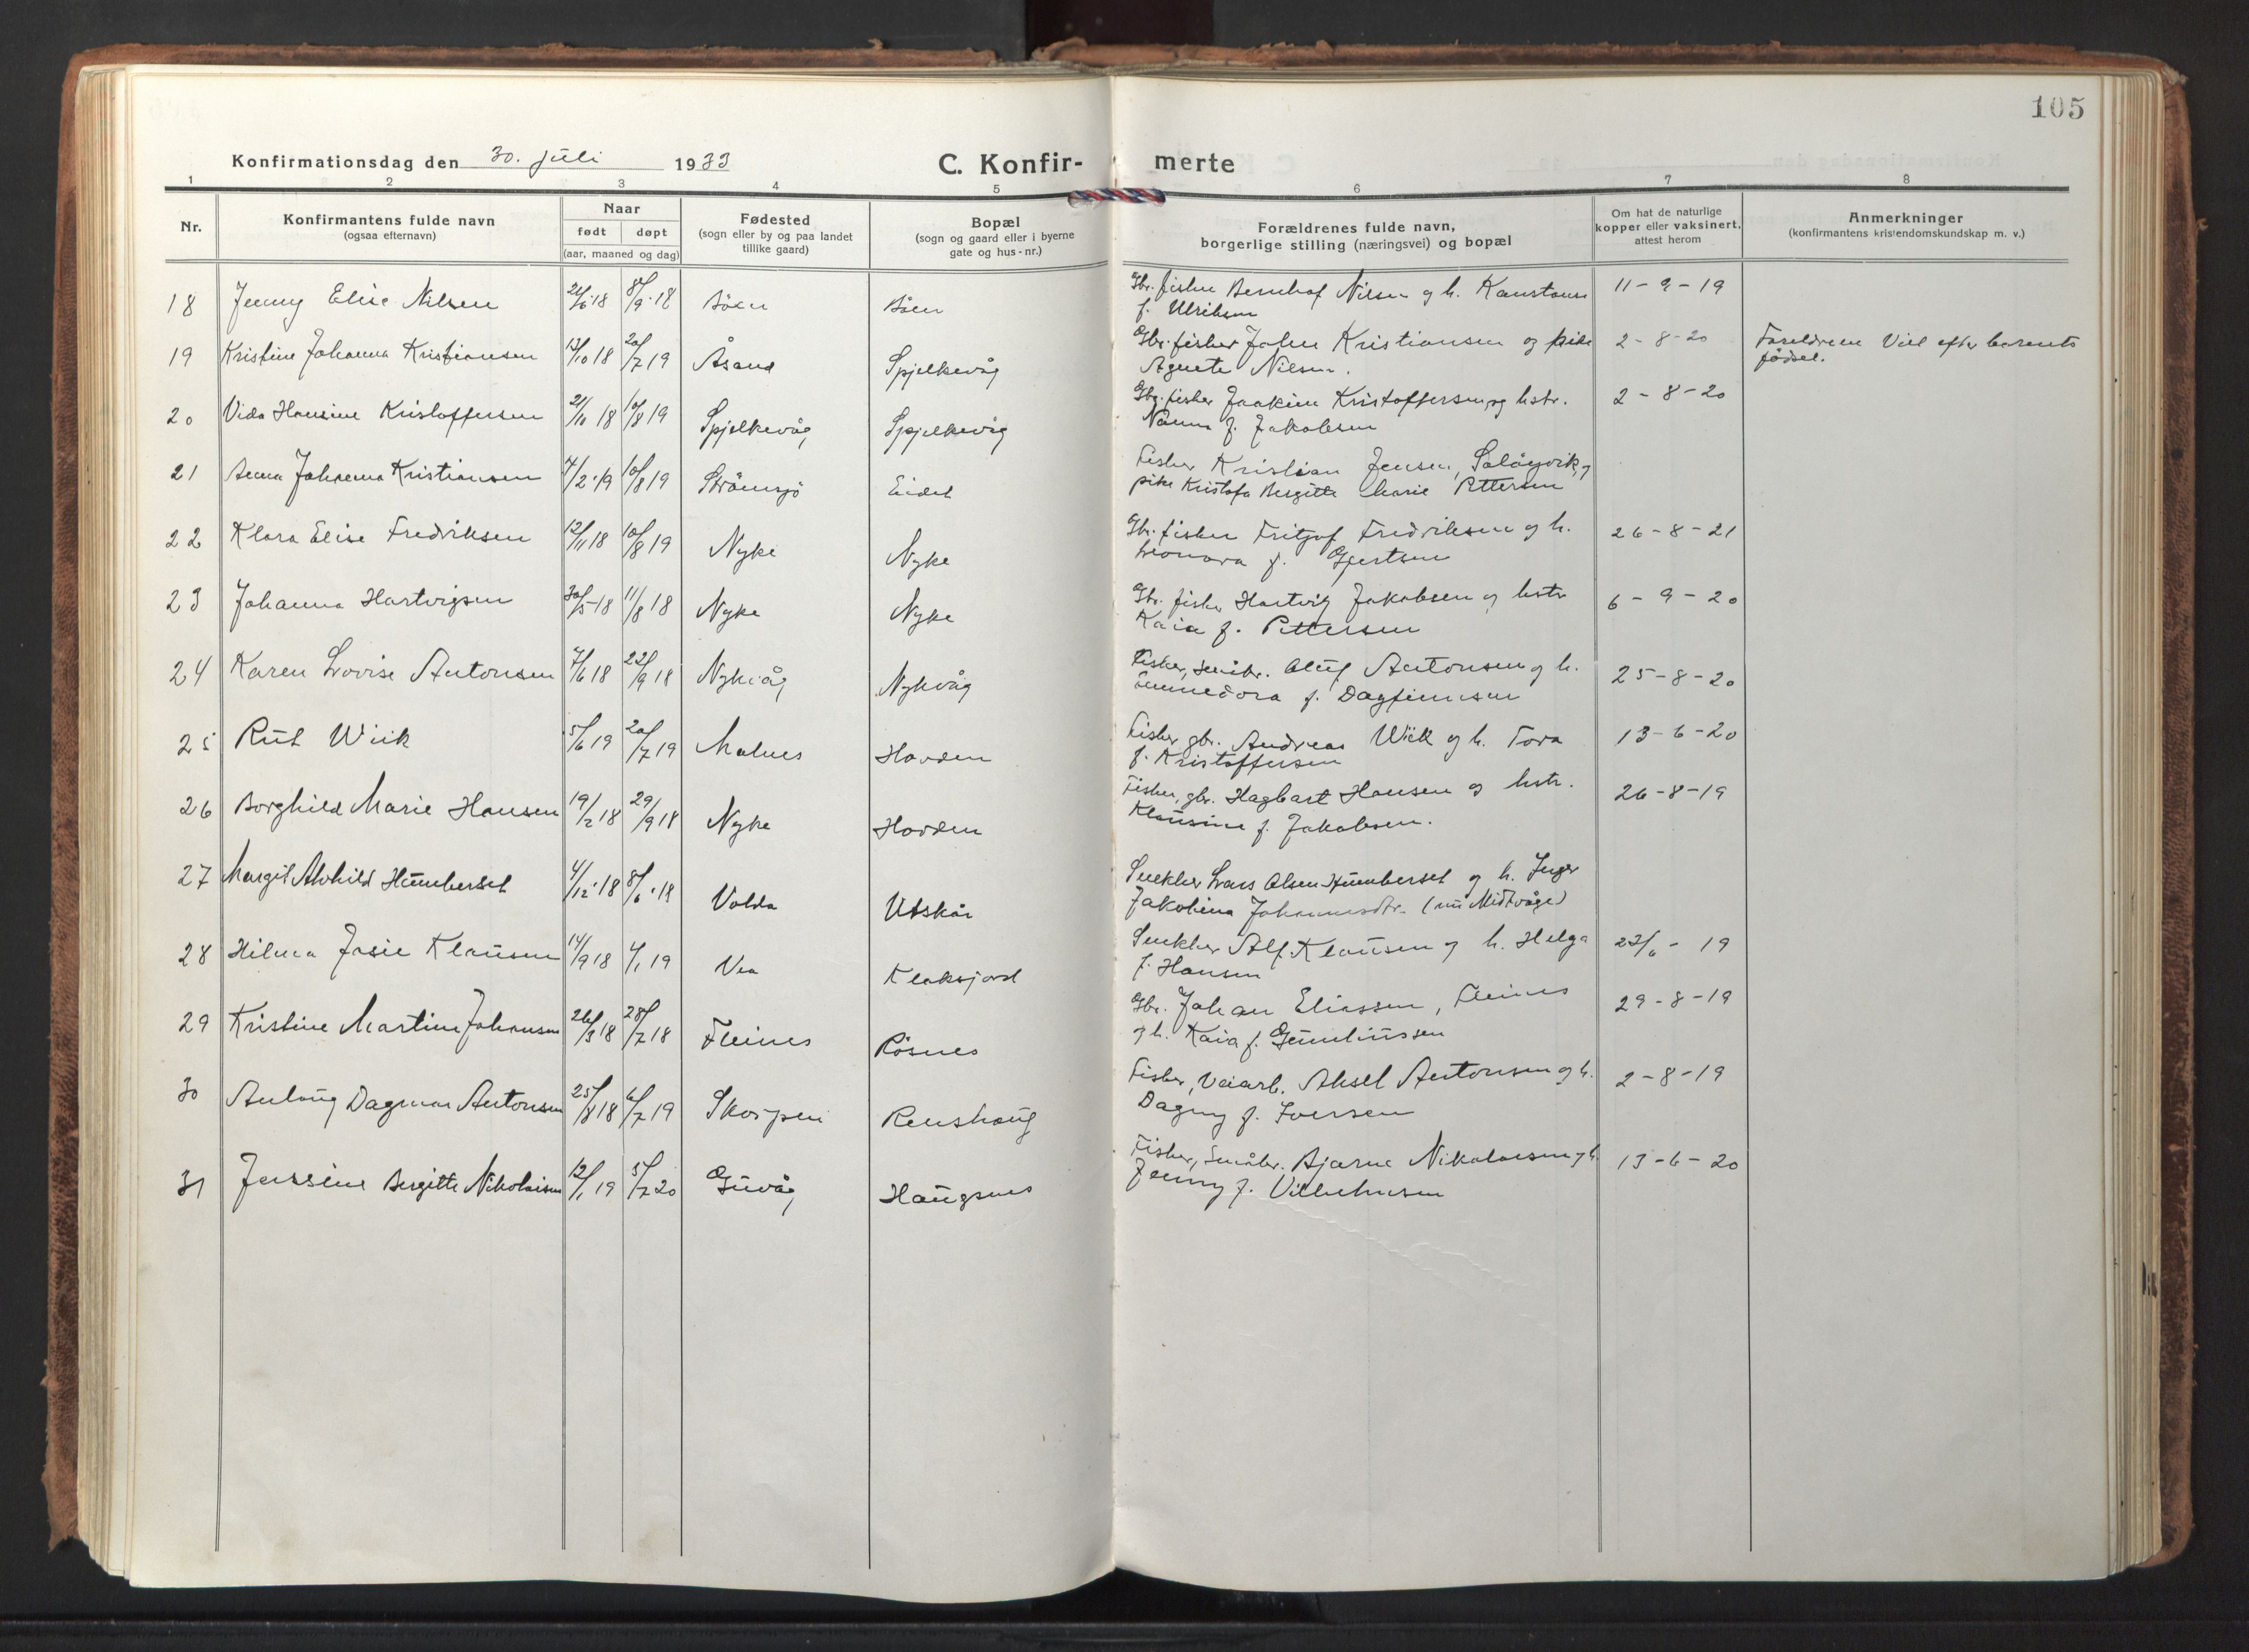 105
Konfirmationsdag den 30. juli 1933
C. Konfir- merte
1 2 3 4 5 6 7 8
Nr.
Konfirmantens fulde navn
(ogsaa efternavn)
Naar
født døpt
(aar, maaned og dag)
Fødested
(sogn eller by og paa landet
tillike gaard)
Bopæl
(sogn og gaard eller i byerne
gate og hus-nr.)
Forældrenes fulde navn,
borgerlige stilling (næringsvei) og bopæl
Om hat de naturlige
kopper eller vaksinert,
attest herom
Anmerkninger
(konfirmantens kristendomskundskap m. v.)
18 Jenny Elise Nilsen 21/6-18 8/9-18 Gbr. fisker Bernhof Nilsen og h. Konstanse 11-9-19
f. Ulriksen
19 Kristine Johanna Kristiansen 13/10 18 20/7 19 Åsand Spjelkevåg Gbr. fisker Johan Kristiansen og pike 2-8-20 Foreldrene Viet efter barnets
Agnete Nilsen. fødsel.
20 Vida Hansine Kristoffersen 21/11 18 10/8 19 Spjelkevåg Spjelkevåg Gbr. fisker Joakim Kristoffersen og hstr. 2-8-20
Nanna f. Jakobsen
21 Anna Johanna Kristiansen 7/2-19 10/8 19 Strömsjö Eidet Fisker Kristian Jensen, Salöyvik, og
pike Kristofa Bergitte Marie Pettersen
22 Klara Elise Fredriksen 12/11 18 10/8 19 Nyke Nyke Gbr. fisker Fritjof Fredriksen og h. 26-8-21
Leonora f. Gjertsen
23 Johanna Hartvigsen 30/5-18 11/8 18 Nyke Nyke Gbr. fisker Hartvig Jakobsen og hstr 6-9-20
Kaia f. Pettersen
24 Karen Lovise Antonsen 7/6 18 22/9 18 Nykvåg Nykvåg Fisker, småbr. Oluf Antonsen og h. 25-8-20
f. Dagfinnsen
25 Rut Wiik 5/6 19 20/7 19 Malnes Hovden Fisker gbr. Andreas Wiik og h. Tora 13-6-20
f. Kristoffersen
26 Borghild Marie Hansen 19/2 18 29/9 18 Nyke Hovden Fisker, gbr. Hagbart Hansen og hstr. 26-8-19
Klausine f. Jakobsen.
27 Margit Alvhild Humberset 4/12-18 8/6-19 Volda Utskår Snekker Lars Olsen Humberset og h. Inger
Jakobina Johannesdtr. (nu Midtvåge)
28 Hilma Josie Klausen 14/9 18 1/1 19 Vea Klaksjord Snekker Alf Klausen og h. Helga 23/6-19
f. Hansen
29 Kristine Martine Johansen 26/3 18 28/7 18 Fleines Rösnes Gbr. Johan Eliassen, Fleines 29-8-19
og h. Kaia f. Gunliussen
30 Anlaug Dagmar Antonsen 25/8 18 6/7 19 Skorpen Renshaug Fisker, Veiarb. Aksel Antonsen og h. 2-8-19
Dagny f. Iversen
31 Jenssine Bergitte Nikolaisen 12/1 19 5/7 20 Guvåg Haugsnes Fisker, Småbr. Bjarne Nikolaisen og h. 13-6-20
Jenny f. Vilhelmsen